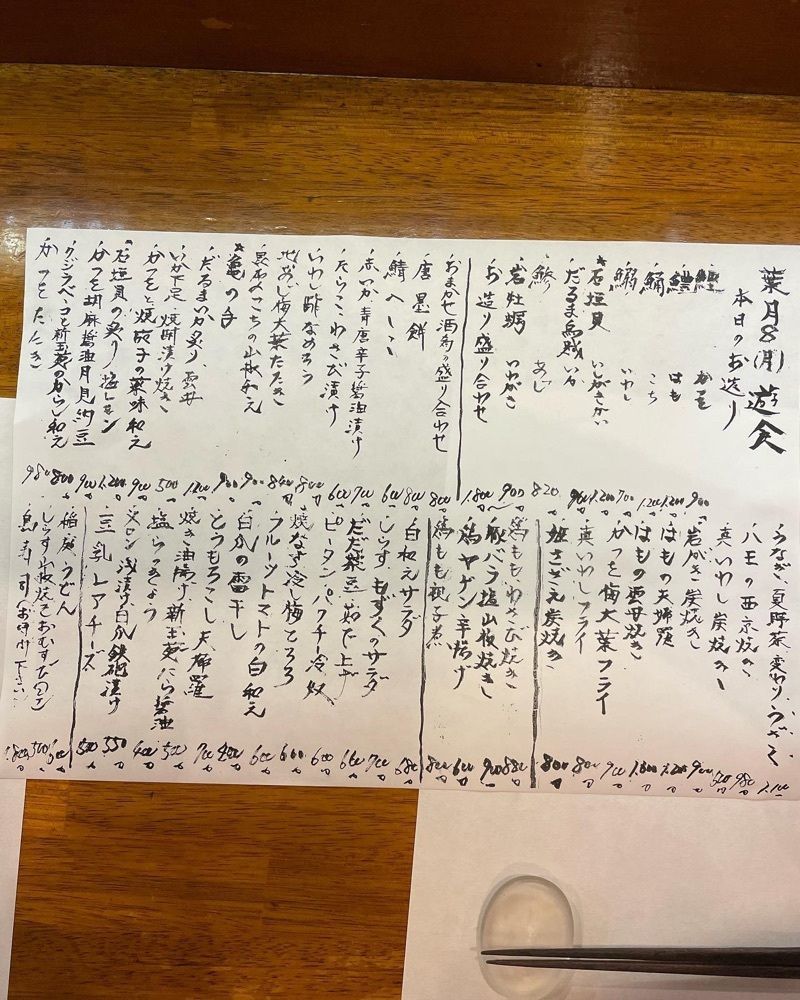 葉月8(月) 遊食
本日のお造り
鰹 かつを 900
鱧 はも 1,200
鯒 こち 1,200
鰯 いわし 700
★石垣貝 いしがきかい 1,200
だるま烏賊 いか 900
鯵 あじ 820
岩牡蠣 いわがき 900
お造り盛り合わせ 1,800〜
おまかせ酒肴の盛り合わせ 800
唐墨餅 800
鯖へしこ 600
赤いか青唐辛子醤油漬け 700
たらこわさび漬け 600
いわし酢なめろう 800
地あじ梅大葉たたき 840
こちの山椒和え 900
★亀の手 900
だるまいか炙り 雲丹
いか下足 焼酎漬け焼き 500
かつをと焼茄子の薬味和え 900
石垣貝の炙り 塩レモン 1,200
かつを胡麻醤油月見納豆 900
クジラベーコンと新玉葱のからし和え 800
かつをたたき 980
うなぎ、夏野菜、変わりうざく 2,100
八王の西京焼き 980
真いわし炭焼き
岩がき炭焼き 900
はもの天婦羅 1,200
はもの雲丹焼き 1,800
かつを梅大葉フライ 900
真いわしフライ 800
姫さざえ炭焼き 800
鶏ももわさび焼き 880
豚バラ塩山椒焼き 900
鶏ヤゲン辛揚げ 600
鶏もも親子煮 800
白和えサラダ 680
しらすもずくのサラダ 700
だだ茶豆 茹で上げ 660
ピータンパクチー冷奴 600
焼なす冷し梅とろろ 660
フルーツトマトの白和え 600
白瓜の雷干し 400
とうもろこし天婦羅 700
焼き油揚げ 新玉葱だし醤油 500
塩らっきょう 400
メロン浅漬け、白瓜鉄砲漬け 550
豆乳レアチーズ 500
稲庭うどん
しらす山椒焼きおむすび 500
寿司 お尋ね下さい 800